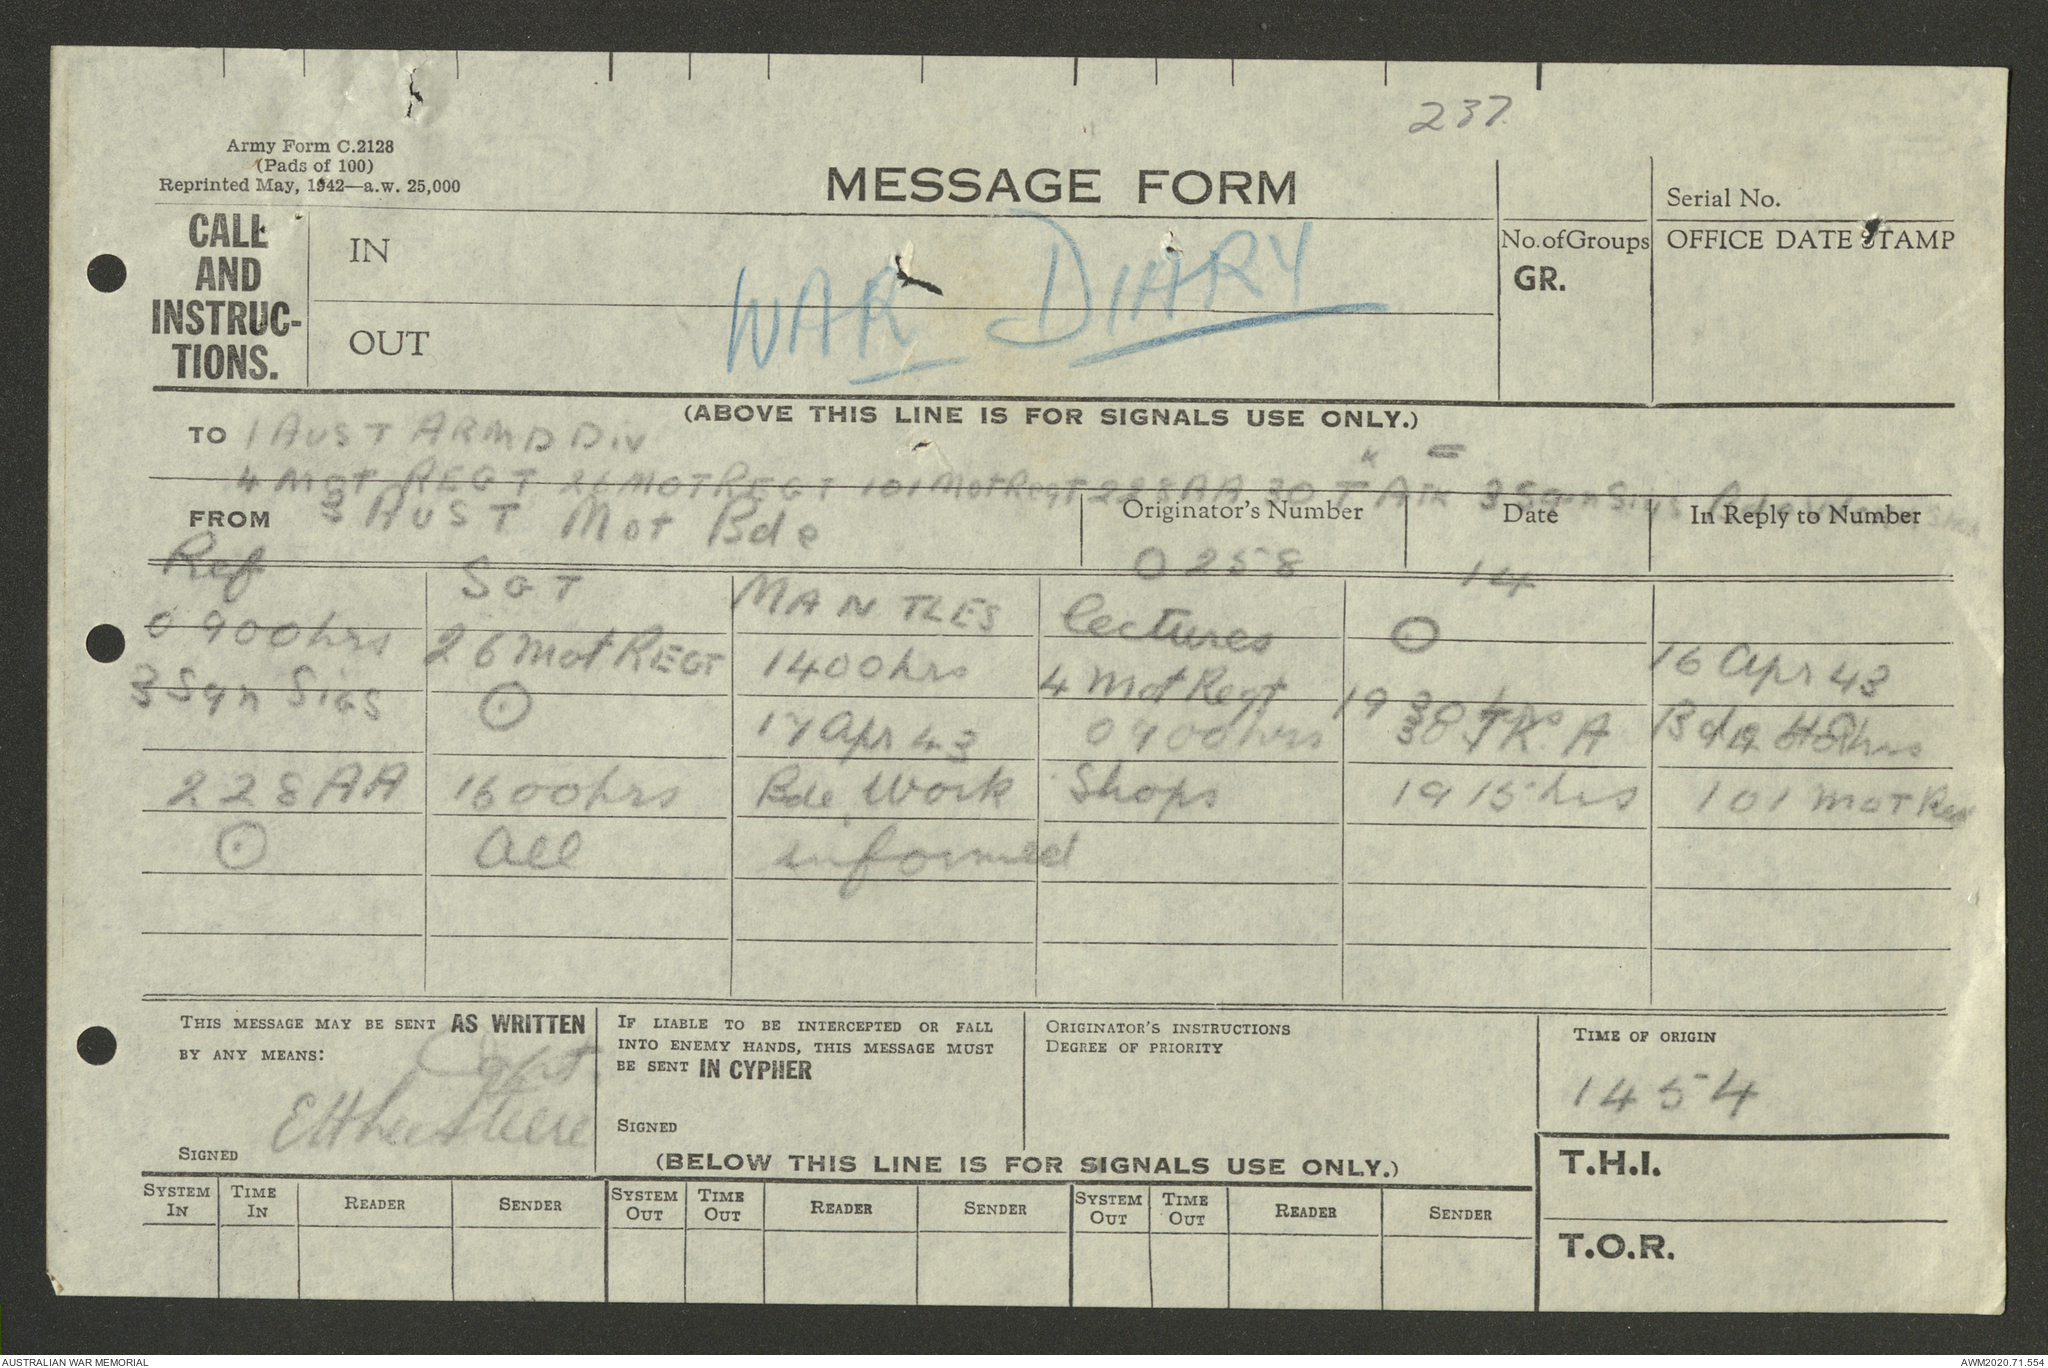 237
Army Form C.2128
(Pads of 100)
Reprinted May, 1942—a.w. 25,000
MESSAGE FORM
Serial No.
CALL AND INSTRUC-TIONS.
IN
OUT
WAR DIARY
No. of Groups
GR.
OFFICE DATE STAMP
(ABOVE THIS LINE IS FOR SIGNALS USE ONLY.)
TO 1 AUST ARMD DIV
4 MOT REGT 26 MOT REGT 101 Mot Regt 228 AA 30 TK A 3 Sqn Sigs Bde
FROM 3 AUST Mot Bde
Originator's Number 0258
Date 14
In Reply to Number
Ref SGT MANTLES lectures ⊙ 16 Apr 43
0900hrs 26 Mot REGT 1400hrs 4 Mot Regt 1930hrs Bde HQ
3 Sqn Sigs ⊙ 17 Apr 43 0900hrs 30 TK A hrs
228 AA 1600hrs Bde Work Shops 1915hrs 101 MOT
⊙ All informed
THIS MESSAGE MAY BE SENT AS WRITTEN BY ANY MEANS:
Capt
SIGNED
IF LIABLE TO BE INTERCEPTED OR FALL INTO ENEMY HANDS, THIS MESSAGE MUST BE SENT IN CYPHER
SIGNED
ORIGINATOR'S INSTRUCTIONS
DEGREE OF PRIORITY
TIME OF ORIGIN
1454
T.H.I.
T.O.R.
(BELOW THIS LINE IS FOR SIGNALS USE ONLY.)
SYSTEM IN TIME IN READER SENDER SYSTEM OUT TIME OUT READER SENDER SYSTEM OUT TIME OUT READER SENDER
AUSTRALIAN WAR MEMORIAL
AWM2020.71.554